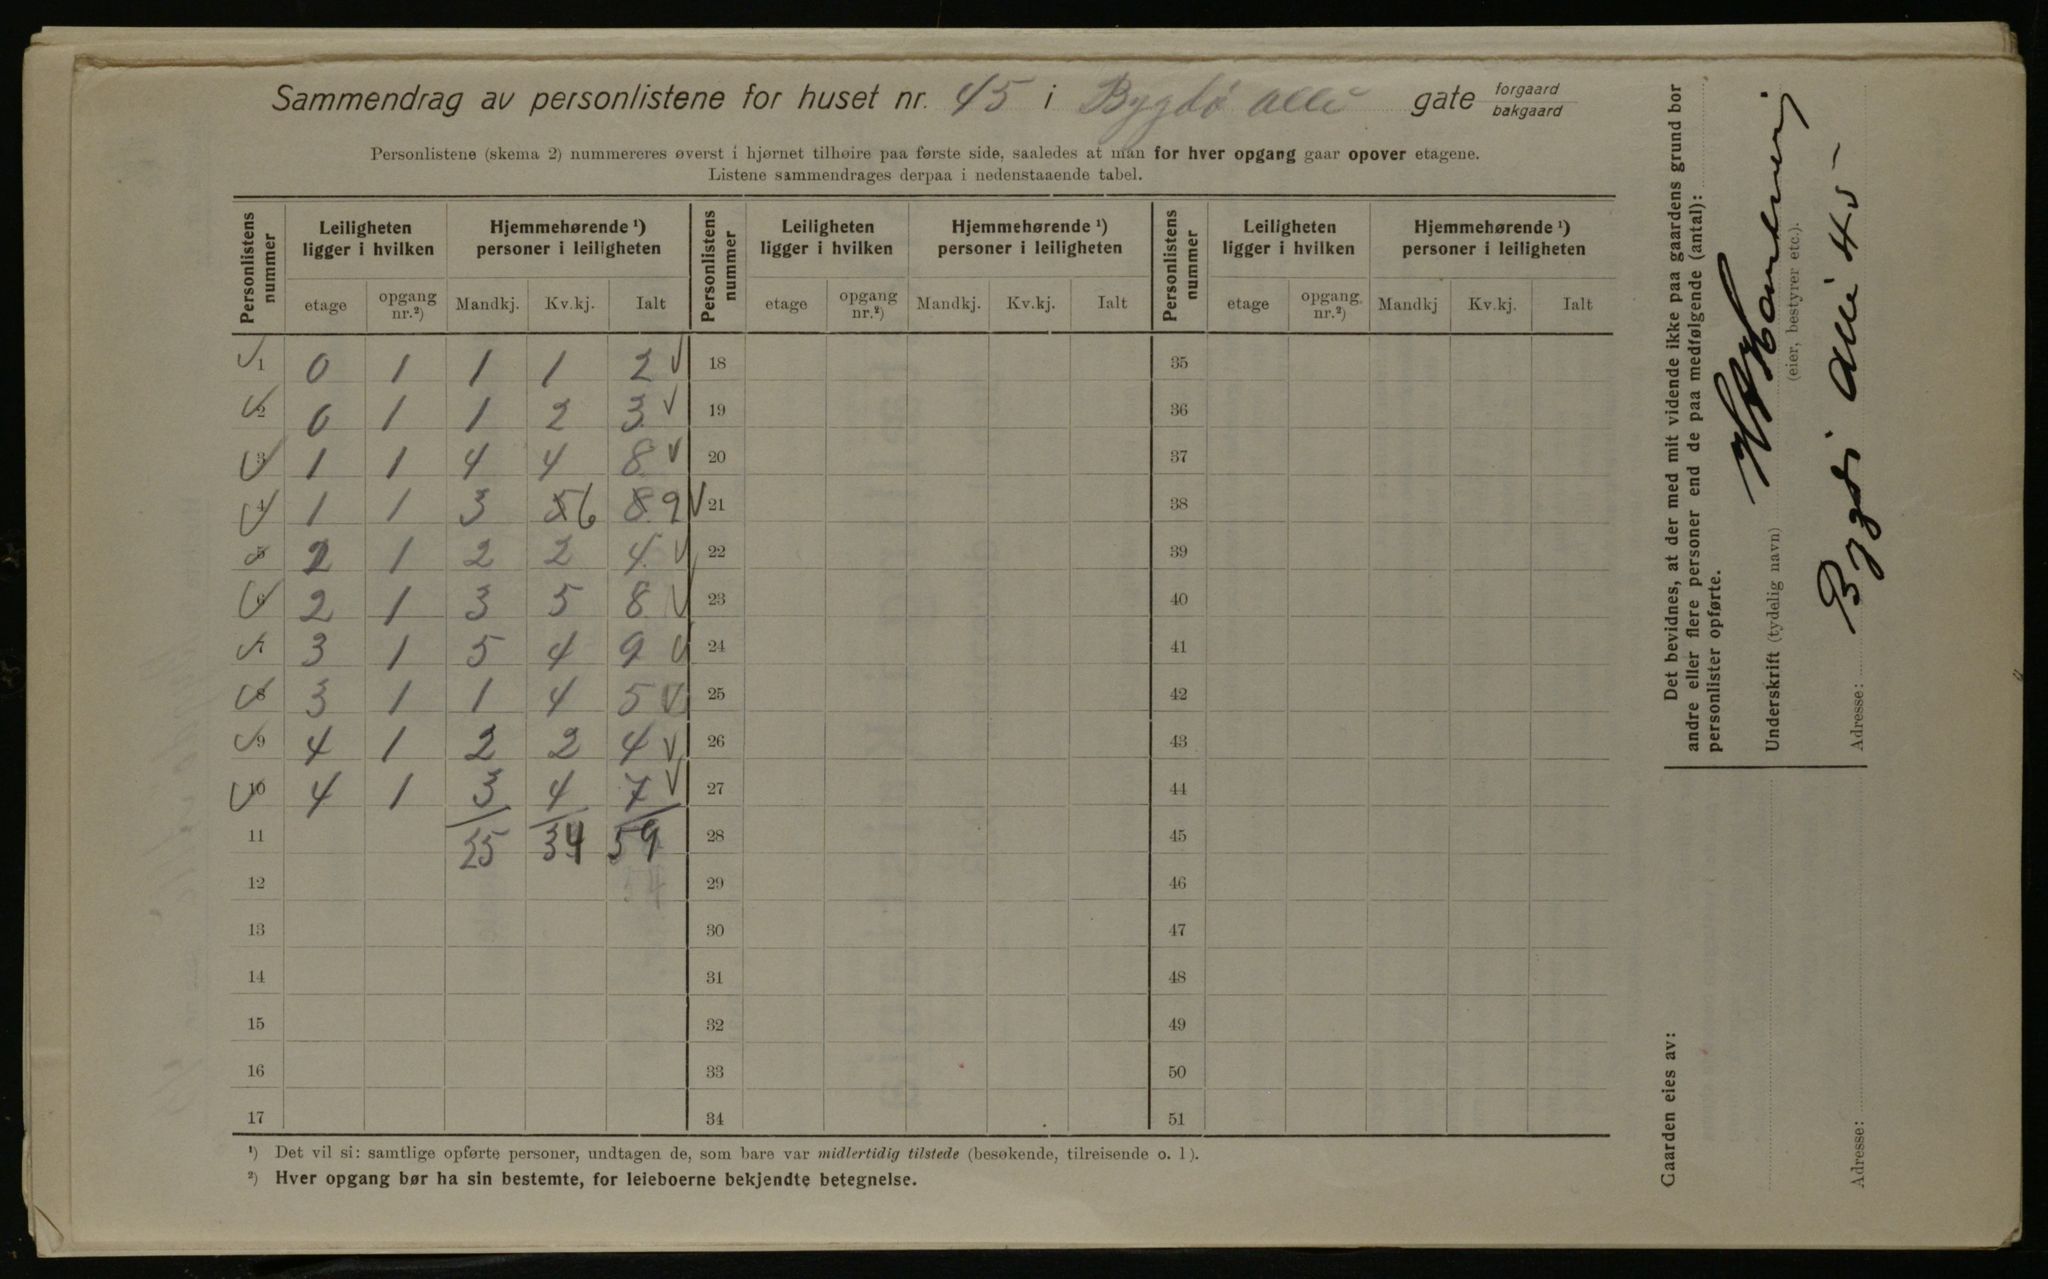 Sammendrag av personlistene for huset nr. 45 i Bygdø alle gate forgaard
bakgaard
Personlistene (skema 2) nummereres øverst i hjørnet tilhøire paa første side, saaledes at man for hver opgang gaar opover etagene.
Listene sammendrages derpaa i nedenstaaende tabel.
Personlistens nummer | Leiligheten ligger i hvilken | Hjemmehørende ¹) personer i leiligheten | Personlistens nummer | Leiligheten ligger i hvilken | Hjemmehørende ¹) personer i leiligheten | Personlistens nummer | Leiligheten ligger i hvilken | Hjemmehørende ¹) personer i leiligheten
etage | opgang nr.²) | Mandkj. | Kv.kj. | Ialt | etage | opgang nr.²) | Mandkj. | Kv.kj. | Ialt | etage | opgang nr.²) | Mandkj | Kv.kj. | Ialt
1 0 1 1 1 2 18 35
2 0 1 1 2 3 19 36
3 1 1 4 4 8 20 37
4 1 1 3 5 6 8 9 21 38
5 2 1 2 2 4 22 39
6 2 1 3 5 8 23 40
7 3 1 5 4 9 24 41
8 3 1 1 4 5 25 42
9 4 1 2 2 4 26 43
10 4 1 3 4 7 27 44
11 25 34 59 28 45
12 29 46
13 30 47
14 31 48
15 32 49
16 33 50
17 34 51
¹) Det vil si: samtlige opførte personer, undtagen de, som bare var midlertidig tilstede (besøkende, tilreisende o. l).
²) Hver opgang bør ha sin bestemte, for leieboerne bekjendte betegnelse.
Det bevidnes, at der med mit vidende ikke paa gaardens grund bor
andre eller flere personer end de paa medfølgende (antal):
personlister opførte.
Underskrift (tydelig navn)
(eier, bestyrer etc.).
Adresse: Bygdø Alle 45
Gaarden eies av:
Adresse: